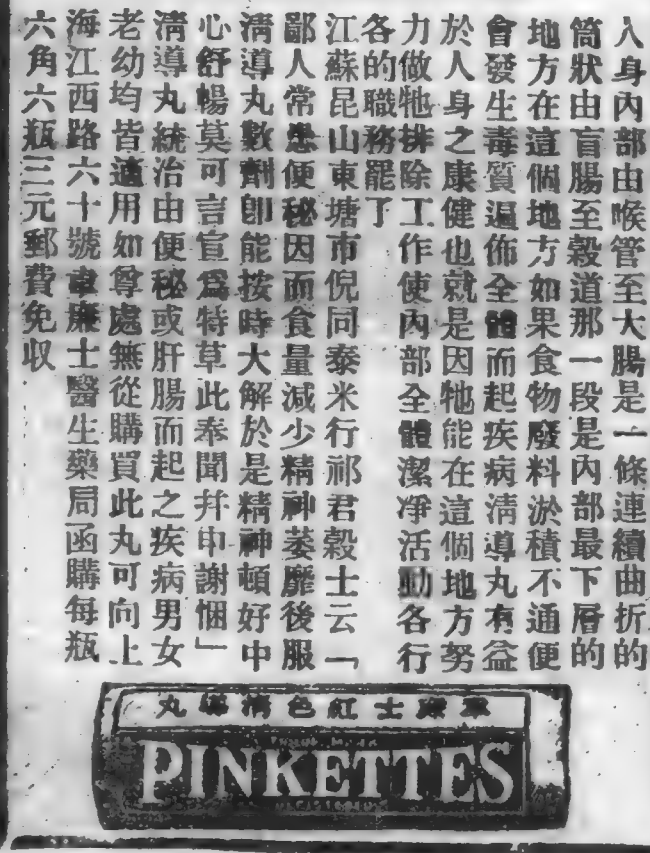 人身內部由喉管至大腸是一條連續曲折的
筒狀由盲腸至穀道那一段是內部最下層的
地方在這個地方如果食物廢料淤積不通便
會發生毒質遍佈全體而起疾病淸導丸有益
於人身之康健也就是因牠能在這個地方努
力做牠排除工作使內部全體潔淨活動各行
各的職務罷了
江蘇昆山東塘市倪同泰米行祁君穀士云「
鄙人常患便秘因而食量減少精神萎靡後服
淸導丸數劑卽能按時大解於是精神頓好中
心舒暢莫可言宣爲特草此奉聞幷申謝悃」
淸導丸統治由便秘或肝腸而起之疾病男女
老幼均皆適用如尊處無從購買此丸可向上
海江西路六十號韋廉士醫生藥局函購每瓶
六角六瓶三元郵費免収
韋廉士紅色淸導丸
PINKETTES